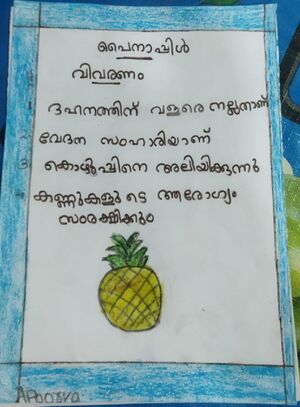 പൈനാപ്പിൾ
വിവരണം
1 ദഹനത്തിന് വളരെ നല്ലതാണ്
2 വേദന സംഹാരിയാണ്
3 കൊഴുപ്പിനെ അലിയിക്കുന്നു
4 കണ്ണുകളുടെ ആരോഗ്യം
സംരക്ഷിക്കും
APoorva